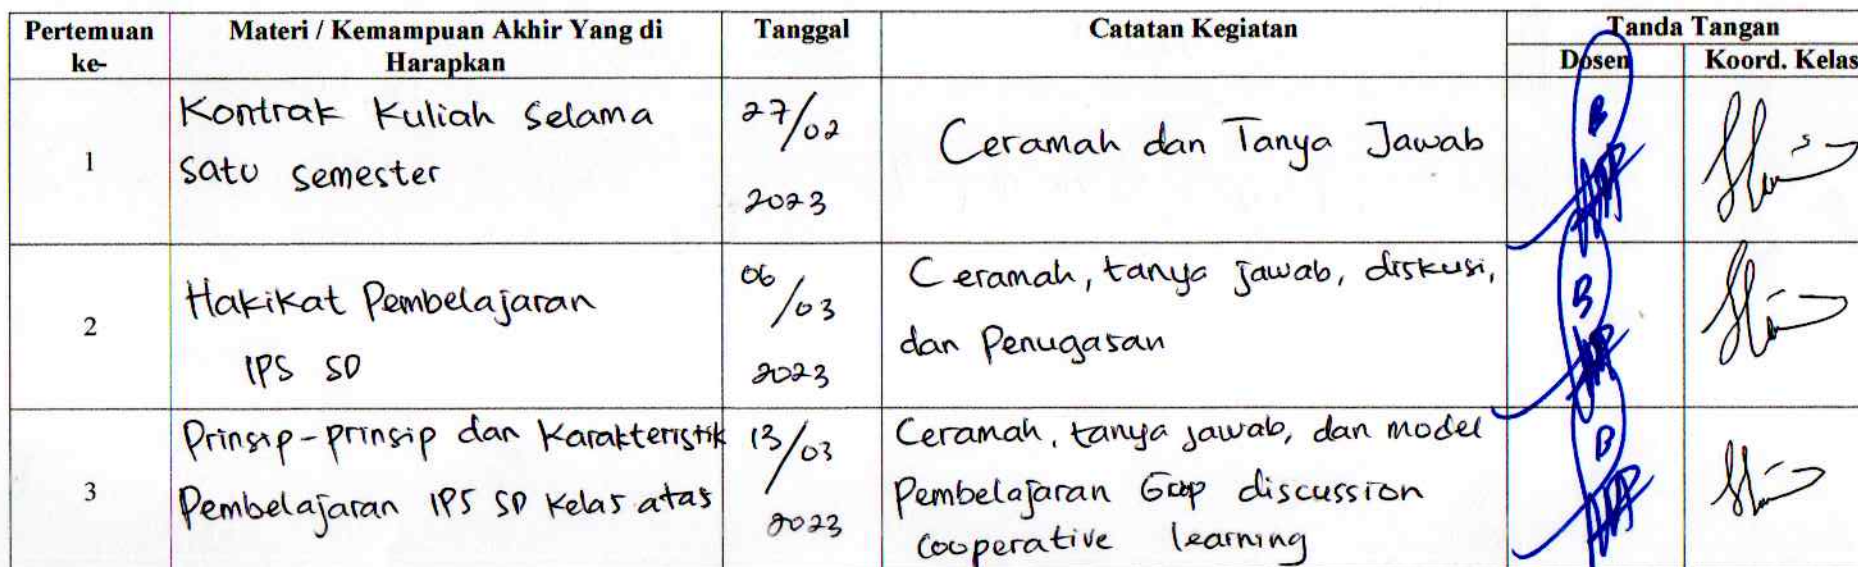 Pertemuan ke-
Materi / Kemampuan Akhir Yang di Harapkan
Tanggal
Catatan Kegiatan
Tanda Tangan
Dosen
Koord. Kelas
1
Kontrak Kuliah Selama
satu semester
27/02
2023
Ceramah dan Tanya Jawab
2
Hakikat Pembelajaran
IPS SD
06/03
2023
Ceramah, tanya jawab, diskusi,
dan Penugasan
3
Prinsip-prinsip dan Karakteristik
Pembelajaran IPS SD Kelas atas
13/03
2023
Ceramah, tanya jawab, dan model
Pembelajaran discussion
cooperative learning